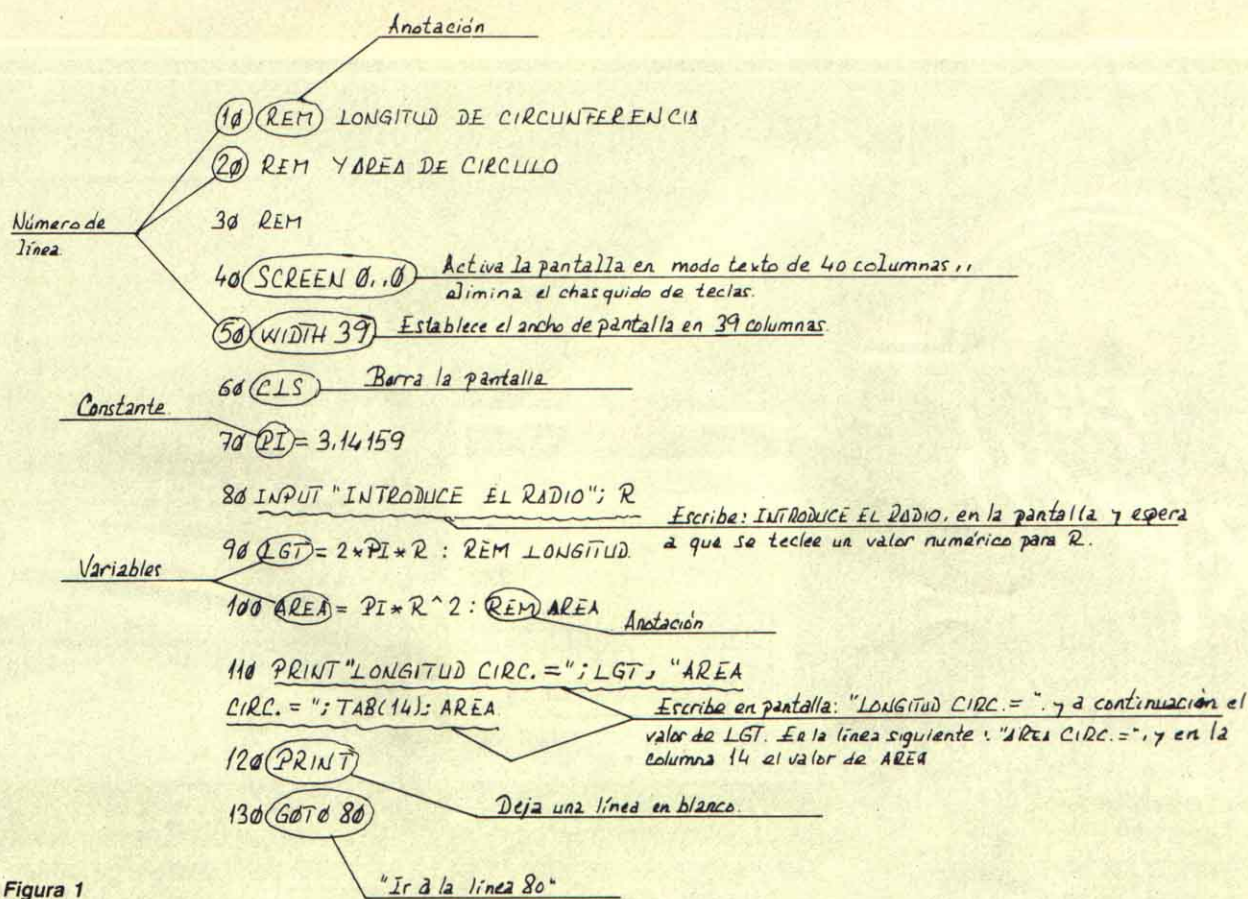 Anotación
10 REM LONGITUD DE CIRCUNFERENCIA
20 REM Y AREA DE CIRCULO
Número de
línea.
30 REM
40 SCREEN 0,,0
Activa la pantalla en modo texto de 40 columnas,,
elimina el chasquido de teclas.
50 WIDTH 39
Establece el ancho de pantalla en 39 columnas.
60 CLS
Borra la pantalla
Constante.
70 PI = 3.14159
80 INPUT "INTRODUCE EL RADIO"; R
Escribe: INTRODUCE EL RADIO, en la pantalla y espera
a que se teclee un valor numérico para R.
90 LGT = 2*PI*R : REM LONGITUD.
Variables
100 AREA = PI*R^2 : REM AREA
Anotación
110 PRINT "LONGITUD CIRC. ="; LGT, "AREA
CIRC. = "; TAB(14); AREA.
Escribe en pantalla: "LONGITUD CIRC. = ". y a continuación el
valor de LGT. En la línea siguiente : "AREA CIRC. =", y en la
columna 14 el valor de AREA
120 PRINT
Deja una línea en blanco.
130 GOTO 80
"Ir a la línea 80"
Figura 1